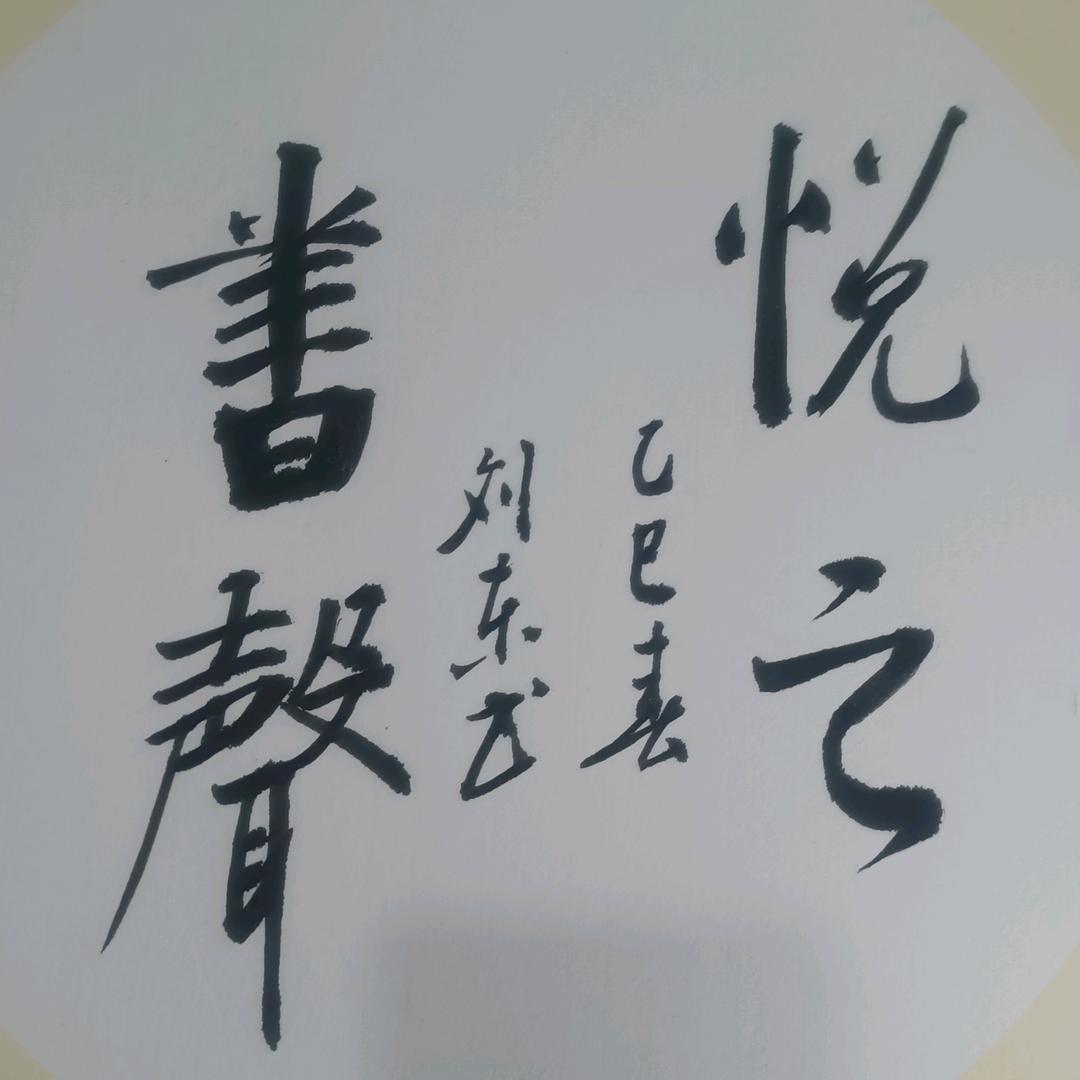 悦之
乙巳春
刘东武
書聲